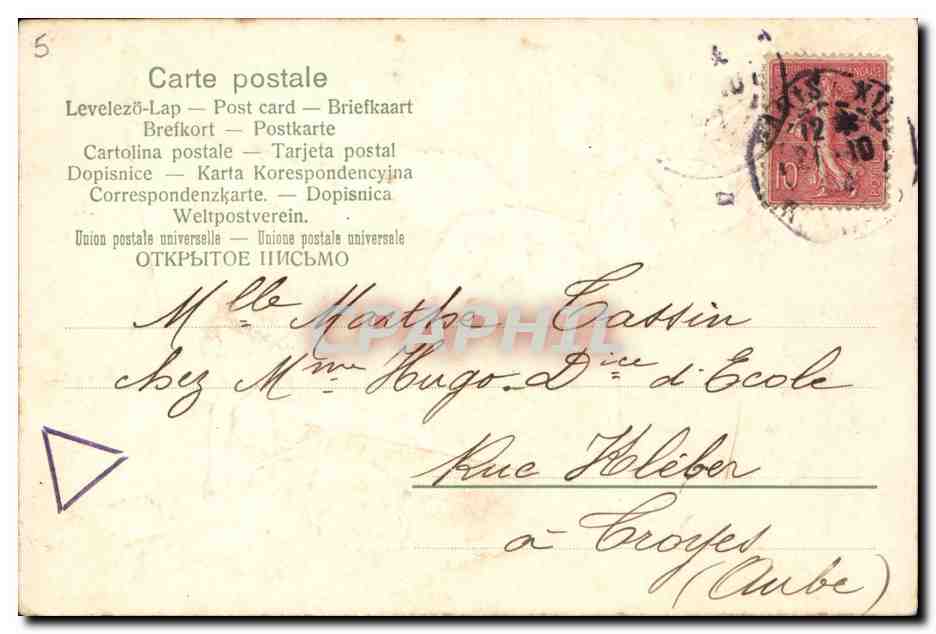 5
Carte postale
Levelezö-Lap — Post card — Briefkaart
Brefkort — Postkarte
Cartolina postale — Tarjeta postal
Dopisnice — Karta Korespondencyjna
Correspondenzkarte. — Dopisnica
Weltpostverein.
Union postale universelle — Unione postale universale
ОТКРЫТОЕ ПИСЬМО
PARIS XIX
12
21 -10
10
POSTES
CPAPHIL
Mlle Marthe Cassin
chez Mme Hugo. Dice d'Ecole
Rue Kléber
à Troyes
(Aube)